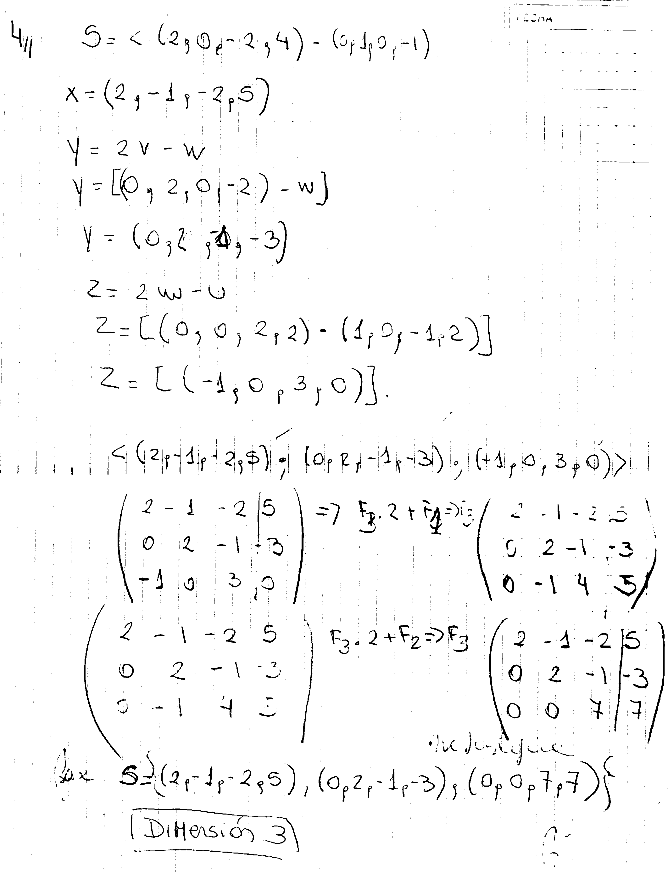 4//
S = < (2, 0, -2, 4) - (0, 1, 0, -1)
x = (2, -1, -2, 5)
y = 2v - w
y = [(0, 2, 0, -2) - w]
y = (0, 2, -1, -3)
z = 2w - u
z = [(0, 0, 2, 2) - (1, 0, -1, 2)]
z = [(-1, 0, 3, 0)].
< (2, -1, -2, 5) ; (0, 2, -1, -3) ; (-1, 0, 3, 0) >
2 -1 -2 | 5
0 2 -1 | -3
-1 0 3 | 0
=> F3 . 2 + F1 => F3
2 -1 -2 5
0 2 -1 -3
0 -1 4 5
2 -1 -2 5
0 2 -1 -3
0 -1 4 5
F3 . 2 + F2 => F3
2 -1 -2 | 5
0 2 -1 | -3
0 0 7 | 7
S = {(2, -1, -2, 5), (0, 2, -1, -3), (0, 0, 7, 7)}
Dimensión 3